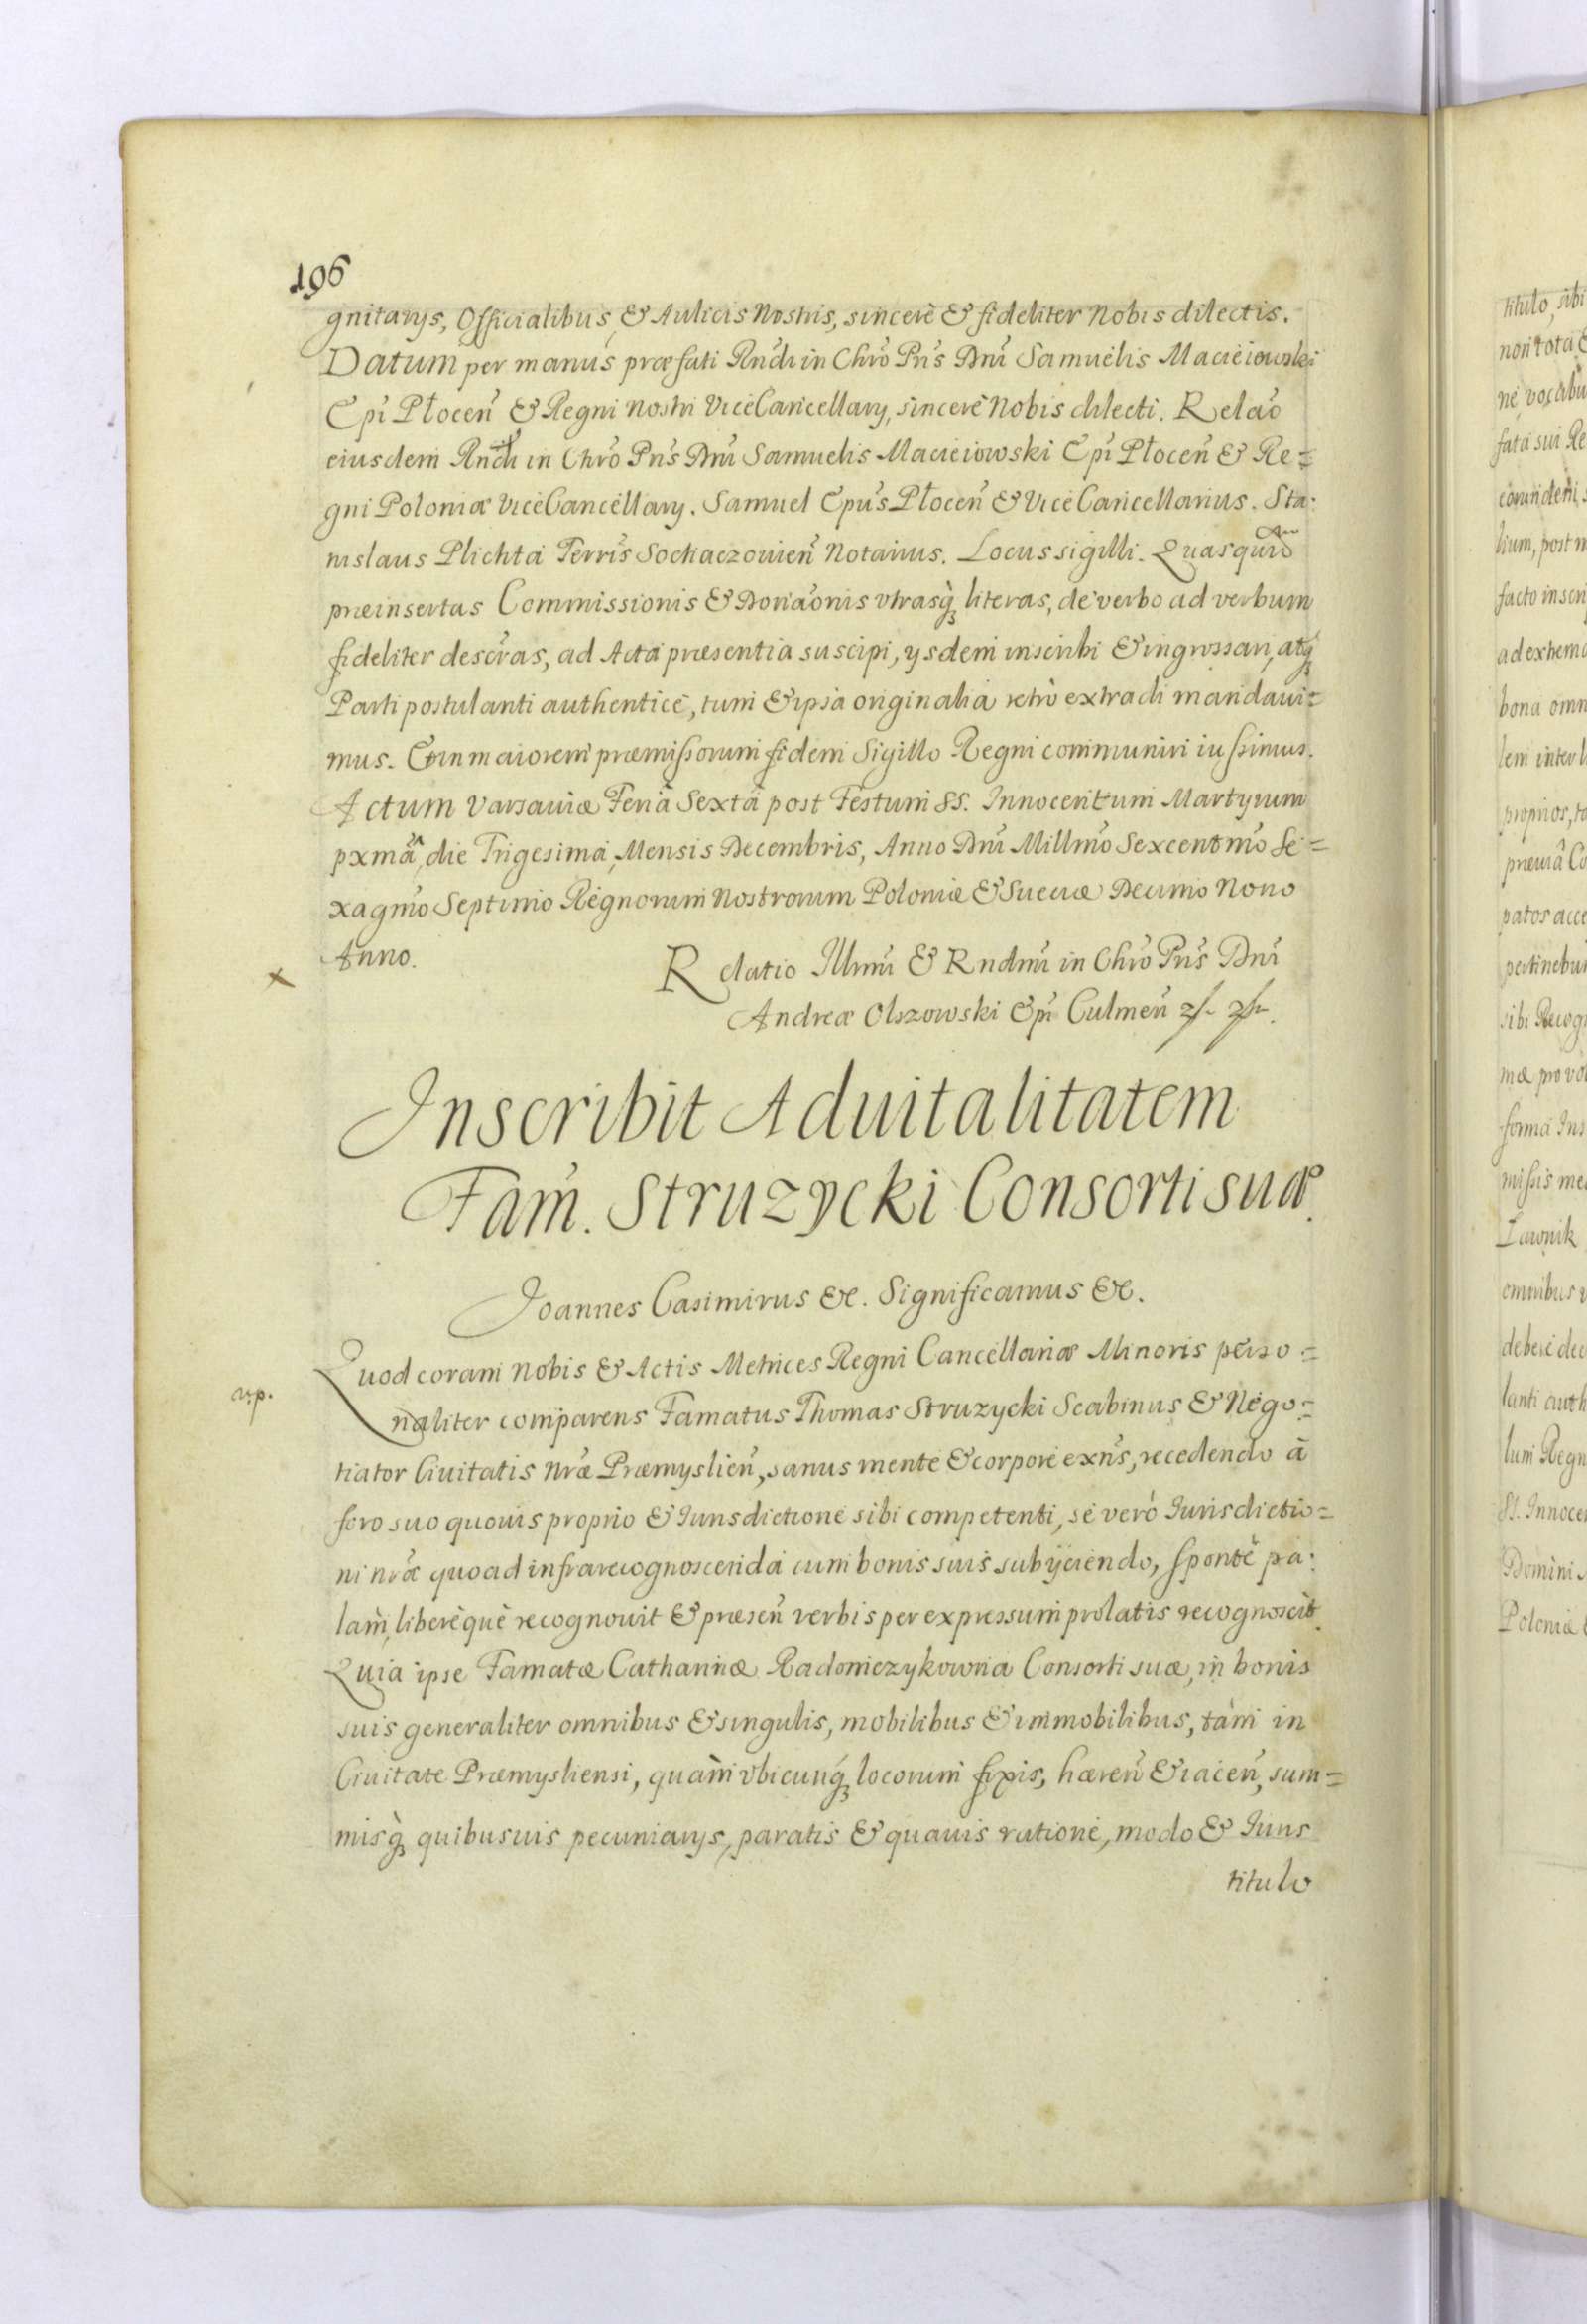 196
gnitarijs, Officialibus, & Aulicis Nostris, sincerè & fideliter Nobis dilectis.
Datum per manus præfati Rndi in Chrõ Pris Dni Samuelis Macieiowski
Epi Płoceñ & Regni Nostri ViceCancellarij, sincerè Nobis dilecti. Relaõ
eiusdem Rndi in Chrõ Pris Dni Samuelis Macieiowski Epi Płoceñ & Re=
gni Poloniæ ViceCancellarij. Samuel Epus Płoceñ & ViceCancellarius. Sta:
nislaus Plichta Terris Sochaczouieñ Notarius. Locus sigilli. Quasquid
præinsertas Commissionis & Donaõnis vtrasq̀ literas, de verbo ad verbum
fideliter descras, ad Acta præsentia suscipi, ijsdem inscribi & ingrossari, atq
Parti postulanti authenticè, tum & ipsa originalia retrò extradi mandaui=
mus. & in maiorem præmissorum fidem Sigillo Regni communiri iussimus.
Actum Varsauiæ Feriâ Sextâ post Festum SS. Innocentum Martyrum
pxmâ, die Trigesima, Mensis Decembris, Anno Dni Millmo Sexcentmo Se=
xagmo Septimo Regnorum Nostrorum Poloniæ & Sueciæ Decimo Nono
Anno.
Relatio Illmi & Rndmi in Chrõ Pris Dni
Andreæ Olszowski Epi Culmeñ
Inscribit Aduitalitatem
Fam. Struzycki Consorti suæ.
Joannes Casimirus &c. Significamus &c.
Quod coram Nobis & Actis Metrices Regni Cancellariæ Minoris perso=
naliter comparens Famatus Thomas Struzycki Scabinus & Nego=
tiator Ciuitatis Nræ Præmyslieñ, sanus mente & corpore exñs, recedendo à
foro suo quouis proprio & Iurisdictione sibi competenti, se verò Iurisdictio=
ni nræ quoad infrarecognoscenda cum bonis suis subijciendo, spontè pa:
làm, liberèquè recognouit & præseñ verbis per expressum prolatis recognoscit.
Quia ipse Famatæ Catharinæ Radoniczykowna Consorti suæ, in bonis
suis generaliter omnibus & singulis, mobilibus & immobilibus, tàm in
Ciuitate Præmysliensi, quàm vbicunq́ locorum fixis, hæreñ & iaceñ, sum=
misq̀ quibusuis pecuniarijs, paratis & quauis ratione, modo & Iuris
titulo